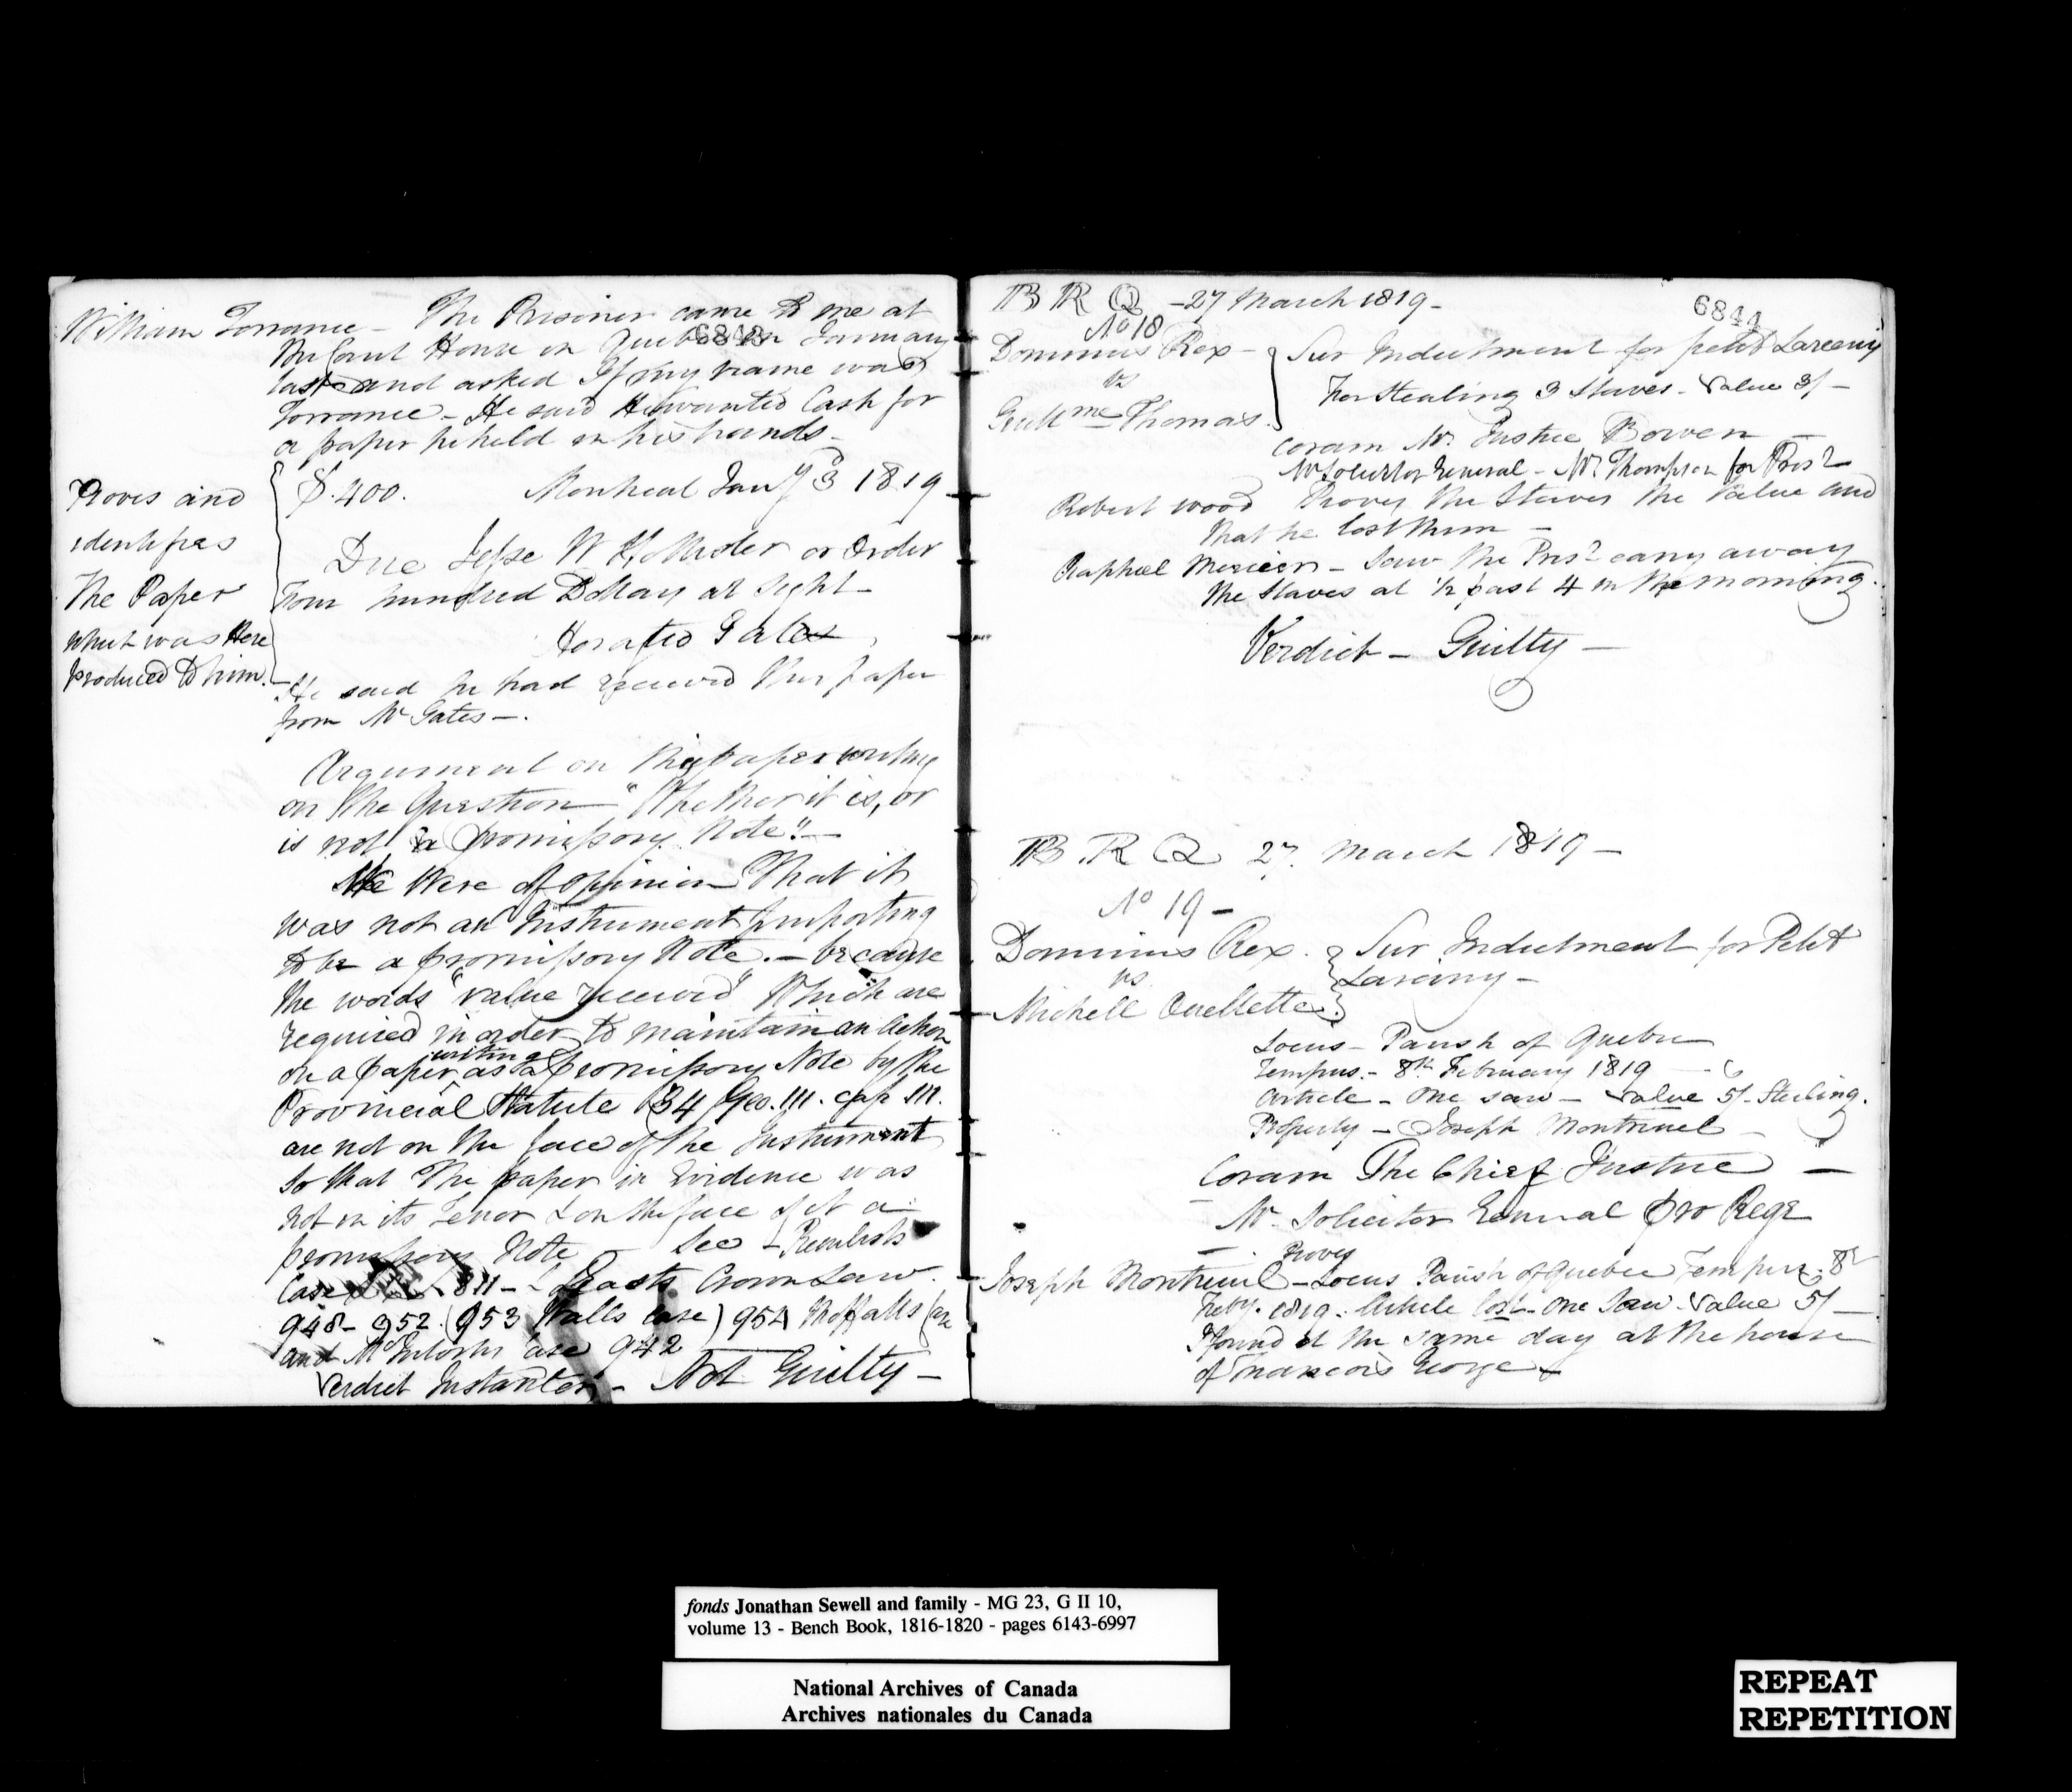 6843
William Torrance - The Prisoner came to me at
the Court House in Quebec in January
last and asked If my name was
Torrance - He said He wanted Cash for
a paper he held in his hands -
Proves and
identifies
The Paper
which was Here
produced to him.
$.400. Montreal Jany 3 1819
Due Jesse W Hollister or order
Four hundred Dollars at Sight -
Horatio Gates
He said he had received this paper
from Mr Gates -.
Argument on this paper writing
on the Question "Whether it is, or
is not a promissory Note" -
We Were of opinion That it
was not an Instrument purporting
to be a promissory Note. - because
the words "value received" Which are
required in order to maintain an Action
on a paper writing as a promissory Note by the
Provincial Statute 34 Geo. III. cap III.
are not on the face of the Instrument
So that The paper in Evidence was
not in its Tenor & on the face of it a
promissory Note - See -
Case 811 - East's Crown Law
948 - 952. (953 Walls case) 954 Moffatts Case
and McIntoshs case 942
Verdict Instanter - Not Guilty -
6844
B R Q - 27 March 1819 -
No 18
Dominus Rex - Sur Indictment for petit Larceny
vs For Stealing 3 Staves - Value 3/ -
Guillme Thomas.
Coram Mr. Justice Bowen -
Mr Solicitor General - Mr. Thompson for Prisr
Robert Wood Proves the Staves the Value and
that he lost them -
Raphael Mercier - Saw the Prisr carry away
the Staves at ½ past 4 in the morning.
Verdict - Guilty -
B R Q 27. March 1819 -
No 19 -
Dominus Rex. Sur Indictment for Petit
vs Larceny -
Michell Ouellette.
Locus - Parish of Quebec
Tempus. - 8th February 1819 -
Article - One saw - Value 5/- Sterling.
Property - Joseph Montreuil -
Coram The Chief Justice -
Mr. Solicitor General pro Rege
Joseph Montreuil - Proves Locus Parish of Quebec Tempus. 8th
Feby. 1819. Article lost - One Saw - Value 5/ -
I found it the same day at the house
of Francois George -
fonds Jonathan Sewell and family - MG 23, G II 10,
volume 13 - Bench Book, 1816-1820 - pages 6143-6997
National Archives of Canada
Archives nationales du Canada
REPEAT
REPETITION